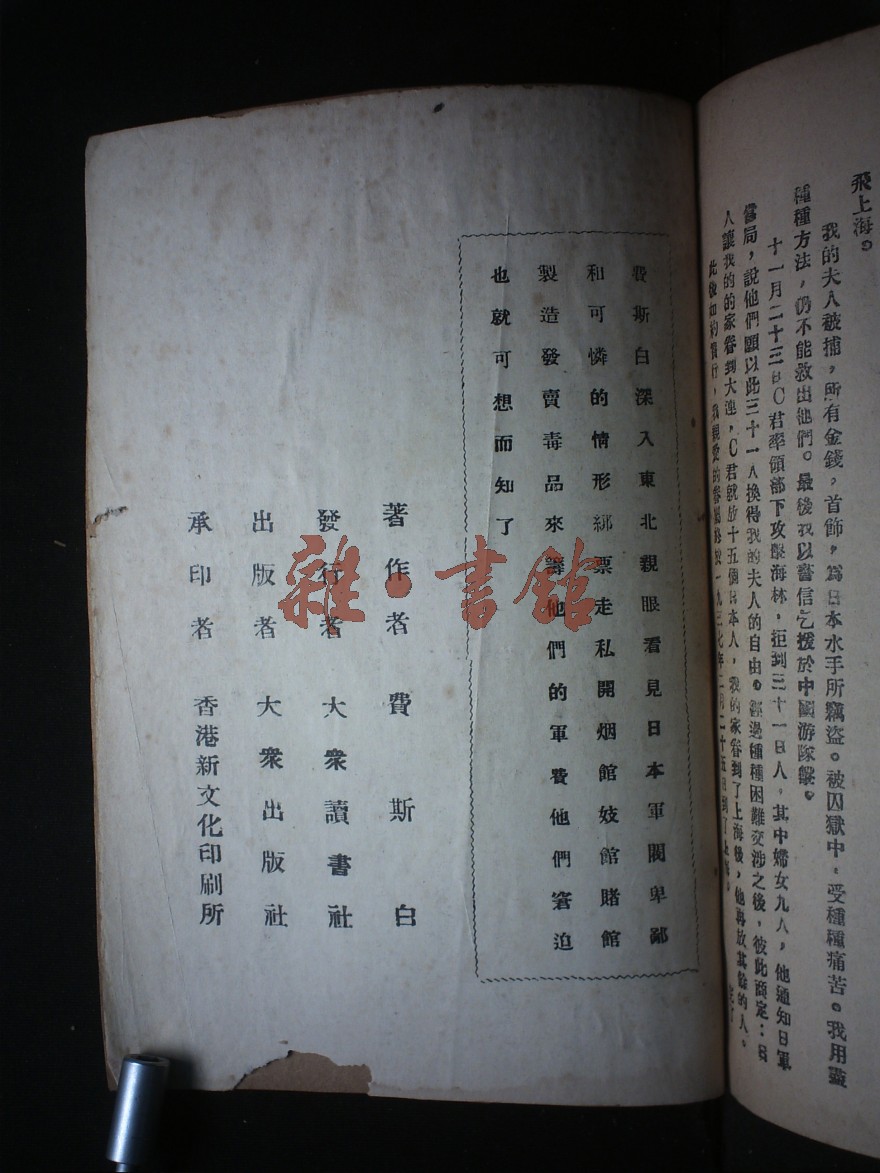 飛上海。
我的夫人被捕，所有金錢，首飾，爲日本水手所竊盜。被囚獄中，受種種痛苦。我用盡
種種方法，仍不能救出他們。最後我以書信乞援於中國游隊
十一月二十三日C君率領部下攻擊海林，拒到三十一日人，其中婦女九人，他通知日軍
當局，說他們願以此三十一人換得我的夫人的自由。經過種種困難交涉之後，彼此商定：日
人讓我的的家眷到大連，C君就放十五個日本人，我的家眷到了上海後，他再放其餘的人。
此後如約實行，我親愛的眷屬 一九三七年二月二十五日到了上海。
費斯白深入東北親眼看見日本軍閥卑鄙
和可憐的情形綁票走私開烟館妓館賭館
製造發賣毒品來籌他們的軍費他們窘迫
也就可想而知了
著作者 費斯白
發行者 大衆讀書社
出版者 大衆出版社
承印者 香港新文化印刷所
雜·書館